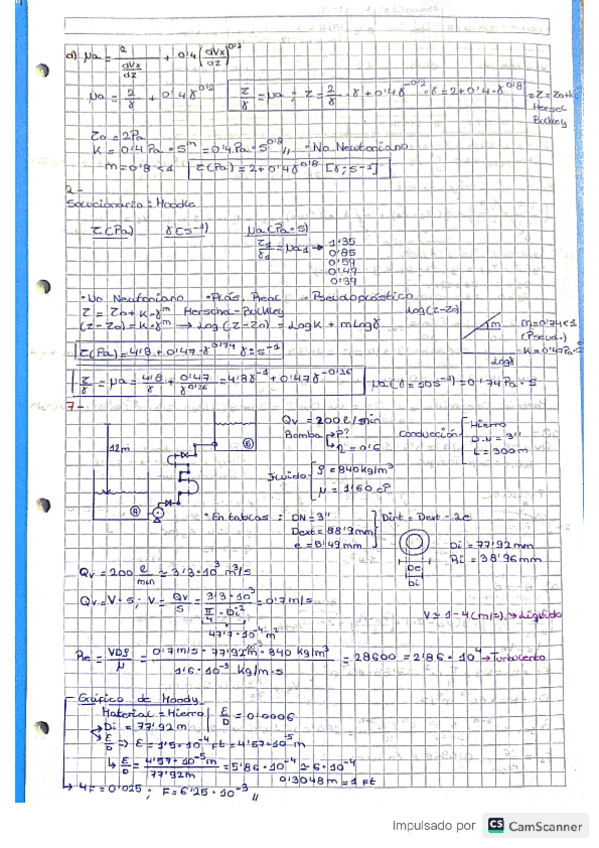 d) μa = 2 / (dVx/dz) + 0'4 (dVx/dz)^0'2
μa = 2/γ + 0'4 γ^0'2
τ/γ = μa ; τ = 2/γ · γ + 0'4 γ^-0'2 · γ = 2 + 0'4 · γ^0'8
= τ = τ0 + K
Herschel
Buckley
τ0 = 2Pa
K = 0'4 Pa · s^m = 0'4 Pa · s^0'8 // · No Newtoniano
m = 0'8 < 1 τ(Pa) = 2 + 0'4 γ^0'8 [γ ; s^-1]
2-
Solucionario: Moodle
τ(Pa) γ(s^-1) μa (Pa·s)
τ1/γ1 = μa1 → 1'35
0'85
0'59
0'47
0'39
· No Newtoniano · Plás. Real · Pseudoplástico
τ = τ0 + K·γ^m Herschel - Buckley
(τ-τ0) = K·γ^m → Log (τ-τ0) = Log K + m Log γ
Log(τ-τ0)
m
Log γ
m = 0'74 < 1
(Pseud.)
K = 0'47 Pa
τ(Pa) = 4'8 + 0'47 · γ^0'74 γ = s^-1
τ/γ = μa = 4'8/γ + 0'47/γ^0'26 = 4'8 γ^-1 + 0'47 γ^-0'26
μa (γ = 10 s^-1) = 0'74 Pa · s
7-
12m
A
B
Qv = 200 ℓ/min
Bomba → P?
→ η = 0'6
Conducción
Hierro
D.N = 3"
L = 300m
Fluido
ρ = 840 kg/m³
μ = 1'60 cP
· En tablas : DN = 3"
Dext = 88'9 mm
e = 5'49 mm
Dint = Dext - 2e
De
Di
Di = 77'92 mm
Ri = 38'96 mm
Qv = 200 ℓ/min ≃ 3'3·10^-3 m³/s
Qv = V · S ; V = Qv/S = 3'3·10^-3 / (π/4 · Di²) = 0'7 m/s
47'7·10^-4 m²
V ≃ 1-4 (m/s) → Líquido
Re = VDρ/μ = 0'7 m/s · 77'92·10^-3 m · 840 kg/m³ / 1'6·10^-3 kg/m·s = 28600 = 2'86 · 10^4 → Turbulento
Gráfico de Moody
Material = Hierro | ε/D = 0'0006
Di = 77'92 m
ε/D ⇒ ε = 1'5·10^-4 ft = 4'57·10^-5 m
ε/D = 4'57·10^-5 m / 77'92 m = 5'86·10^-4 ≃ 6·10^-4
0'3048 m = 1 Ft
→ 4F = 0'025 ; F = 6'25 · 10^-3 //
Impulsado por CS CamScanner